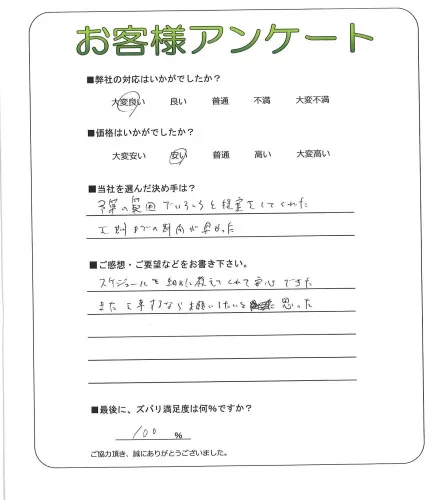 お客様アンケート
■弊社の対応はいかがでしたか?
大変良い 良い 普通 不満 大変不満
■価格はいかがでしたか?
大変安い 安い 普通 高い 大変高い
■当社を選んだ決め手は?
予算の範囲でいろいろと提案をしてくれた
工期までの時間が早かった
■ご感想・ご要望などをお書き下さい。
スケジュールを細かに教えてくれて安心できた
また工事するならお願いしたいと 思った
■最後に、ズバリ満足度は何%ですか?
100 %
ご協力頂き、誠にありがとうございました。